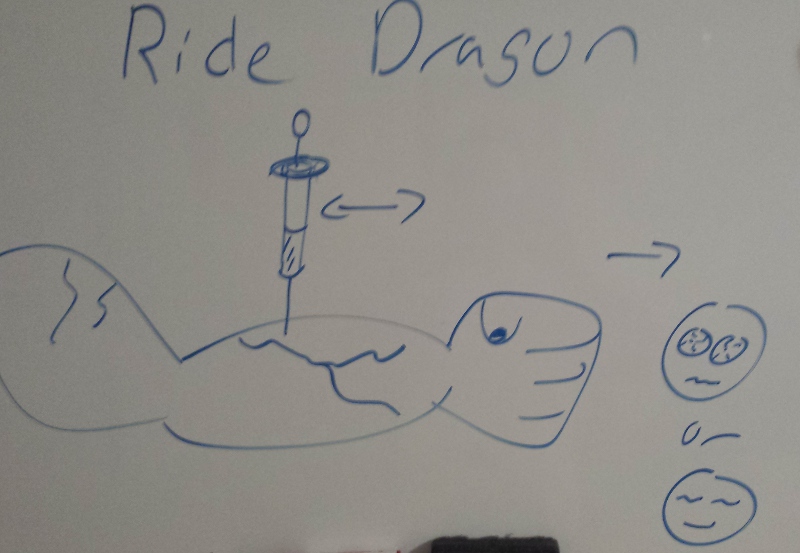 Ride Dragon
or